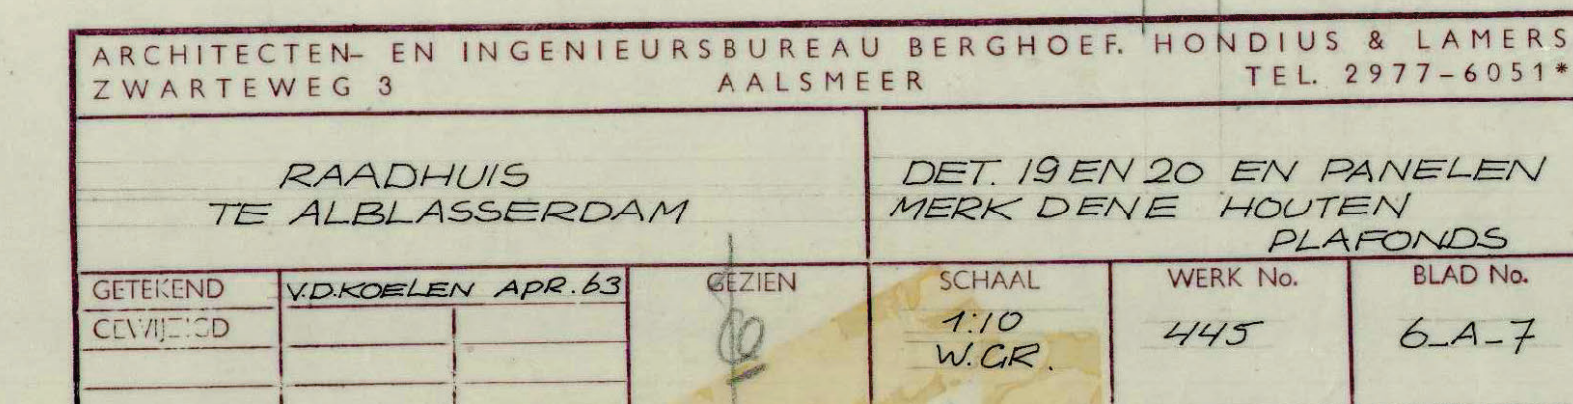 ARCHITECTEN- EN INGENIEURSBUREAU BERGHOEF. HONDIUS & LAMERS
ZWARTEWEG 3 AALSMEER TEL. 2977-6051*
RAADHUIS
TE ALBLASSERDAM
DET. 19 EN 20 EN PANELEN
MERK D ENE HOUTEN
PLAFONDS
GETEKEND V.D.KOELEN APR.63 GEZIEN SCHAAL WERK No. BLAD No.
GEWIJZIGD 1:10 445 6-A-7
W.GR.